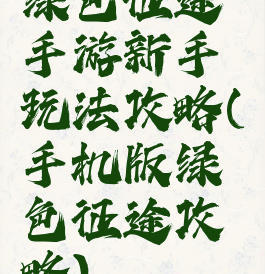 绿色征途
手游新手
玩法攻略(
手机版绿
色征途攻
略)